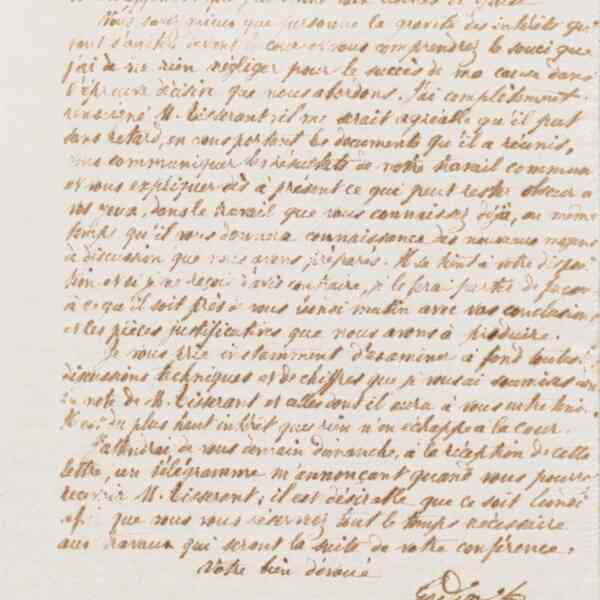 Vous savez mieux que personne la gravité des intérêts qui
sont s'agiter devant la cour et vous comprendrez le souci que
j'ai de ne rien négliger pour le succès de ma cause dans
l'épreuve décisive que nous abordons. J'ai complètement
renseigné M. Tisserant et il me serait agréable qu'il put
sans retard, en vous portant les documents qu'il a réunis,
vous communiquer les résultats de notre travail commun
et vous expliquer dès à présent ce qui peut rester obscur à
vos yeux, dans le travail que vous connaissez déjà, en même
temps qu'il vous donnera connaissance des nouveaux moyens
de discussion que nous avons préparés. Il se tient à votre disposi-
tion et si je ne reçois d'avis contraire, je le ferai partir de façon
à ce qu'il soit près de vous lundi matin avec vos conclusions
et les pièces justificatives que nous avons à produire.
Je vous prie instamment d'examiner à fond toutes
discussions techniques et de chiffres que je vous ai soumises
la note de M. Tisserant et celles dont il aura à vous
Il est du plus haut intérêt que rien n'en échappe à la cour.
J'attendrai de vous demain dimanche, à la réception de cette
lettre, un télégramme m'annonçant quand vous pouvez
recevoir M. Tisserant; il est désirable que ce soit lundi
et que vous vous réserviez tout le temps nécessaire
aux travaux qui seront la suite de votre conférence.
Votre bien dévoué